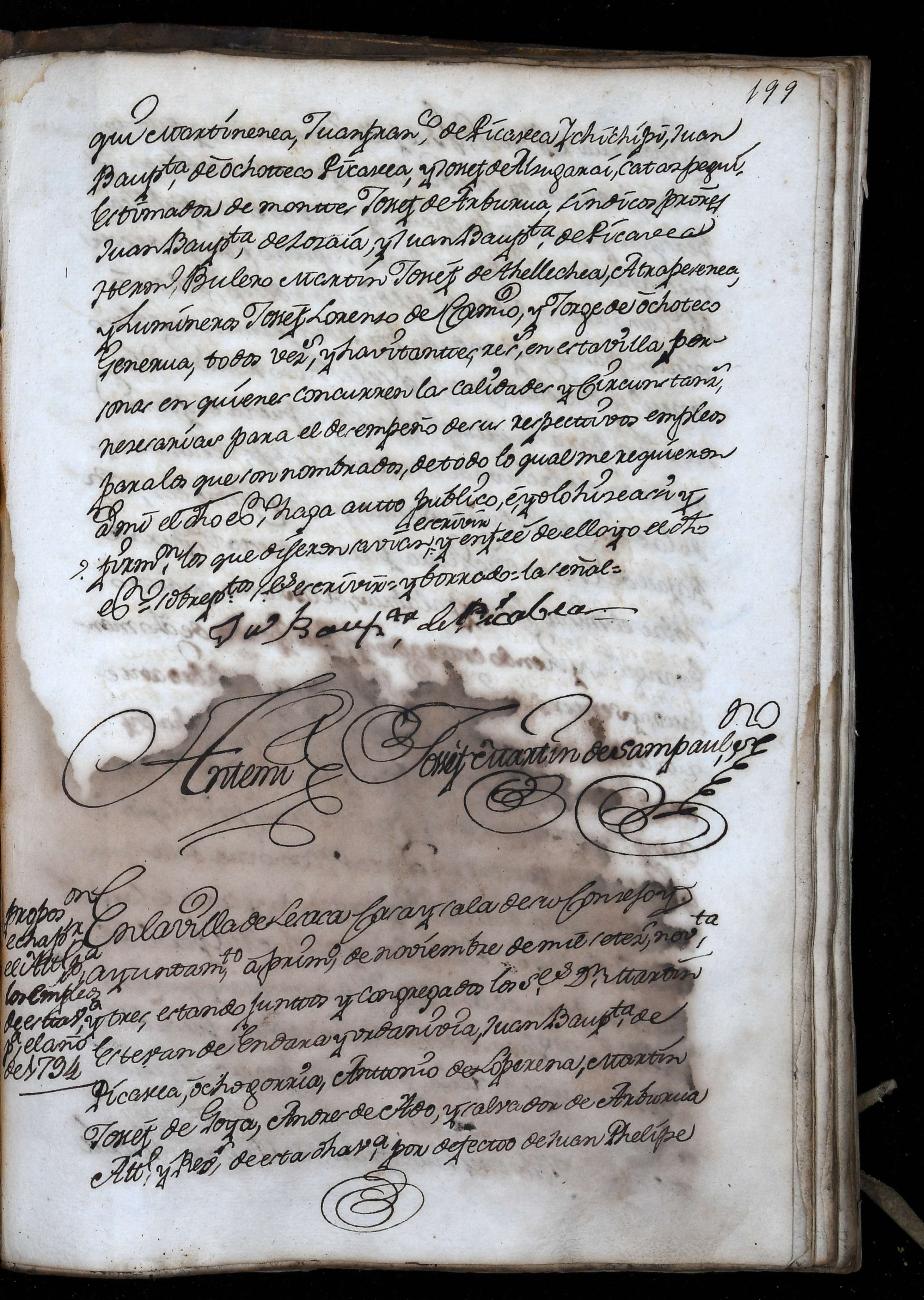 199
qui Martinenea, Juan fran.co de Picavea Ychichipi, Juan
Baup.ta de ochotteco Picavea, y Josef de Alzugarai, Catazpegui,
Estimador de montes Josef de Arburua, sindicos prores
Juan Baup.ta de Lozaia, y Juan Baup.ta de Picavea
Bulero Martin Josef de thellechea, Atraperenea,
y Luminero Josef Lorenso de Camio, y Jorge de ochoteco
Generua, todos vez.s, y havitanttes, res.s, en esta villa, per-
sonas en quienes concurren las calidades y Circunstanz.s
nesesarias para el desempeño de sus respectivos empleos
para los que son nombrados, de todo lo qual me requieren
a mi el dho es.no haga autto publico, é yo lo hize asi y
escrivir
firm.on los que dijeron savian, y en fee de ello yo el dho
es.no sobrep.tto escrivir= y borrado= la señal=
Ju.n Baup.ta de Picabea
Antemi Josef Martin de Sampaul, es.no
propos.on
el año
de 1794
En la villa de Lesaca Casa y sala de su Consejo y
ayuntam.to, a prim.o de noviembre de mil setez.s nov.ta
y tres, estando juntos y congregados los S.es D.n Martin
Estevan de Endara y urdanivia, Juan Baup.ta de
Picavea, ochogorria, Antonio de Loperena, Martin
Josef de Goya, Andres de Ado, y salvador de Arburua
Alc.e y Reg.s de esta dha v.a por defecto de Juan Phelipe